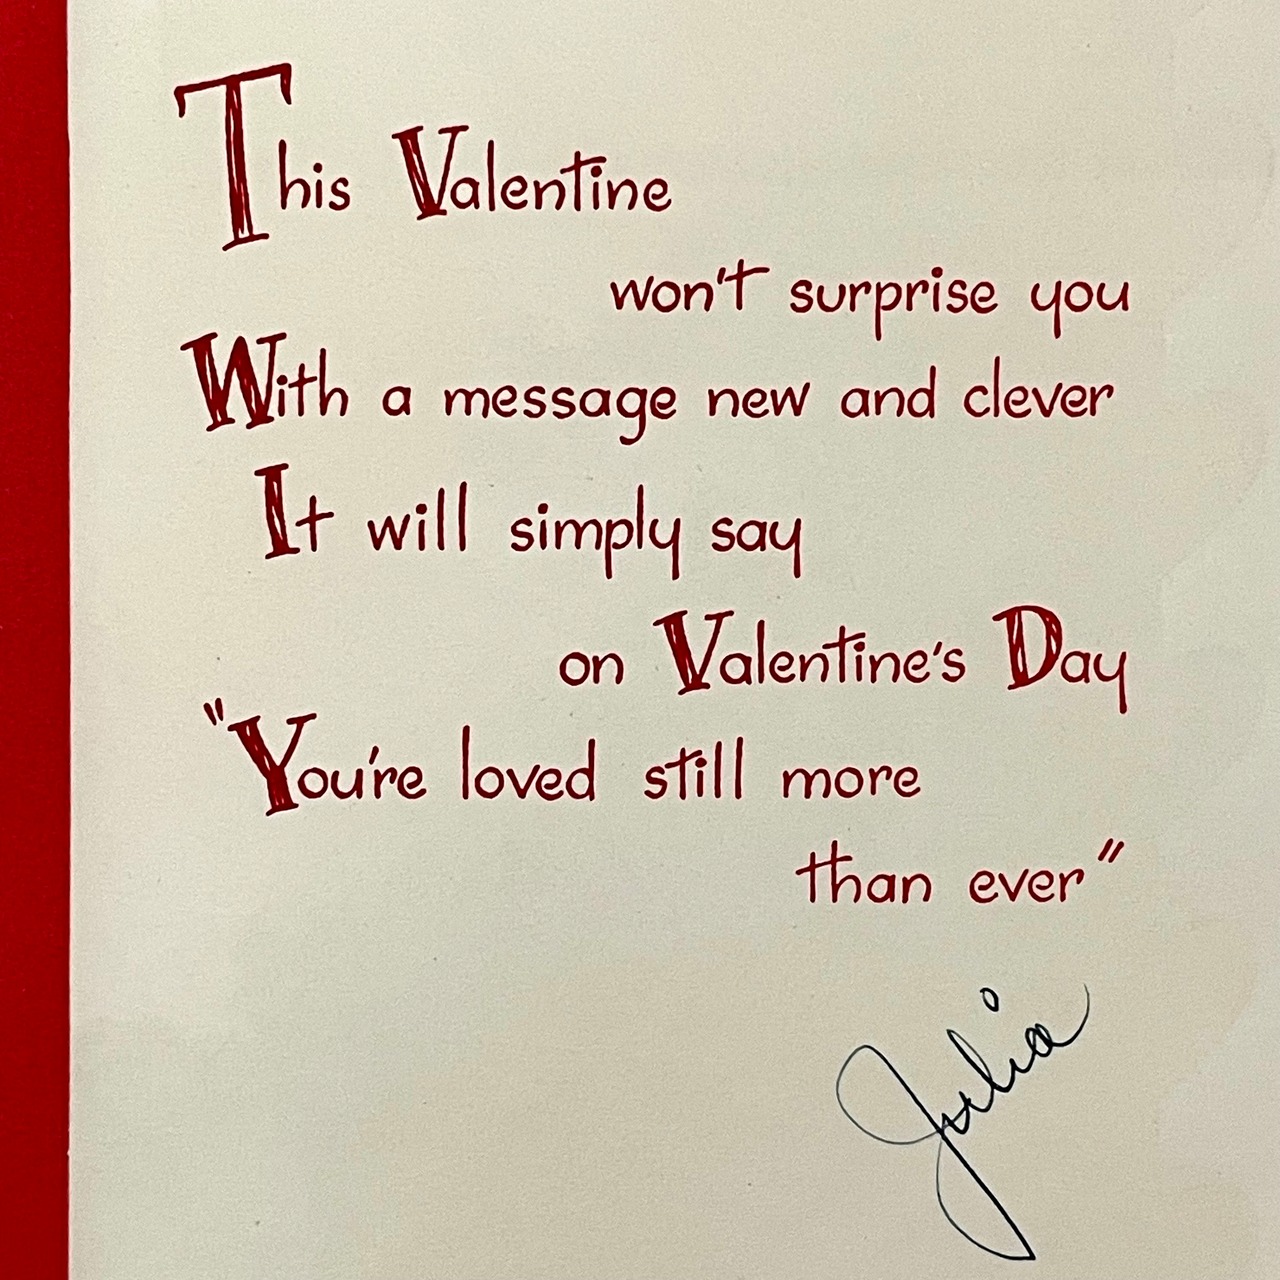 This Valentine
won't surprise you
With a message new and clever
It will simply say
on Valentine's Day
"You're loved still more
than ever"
Julia